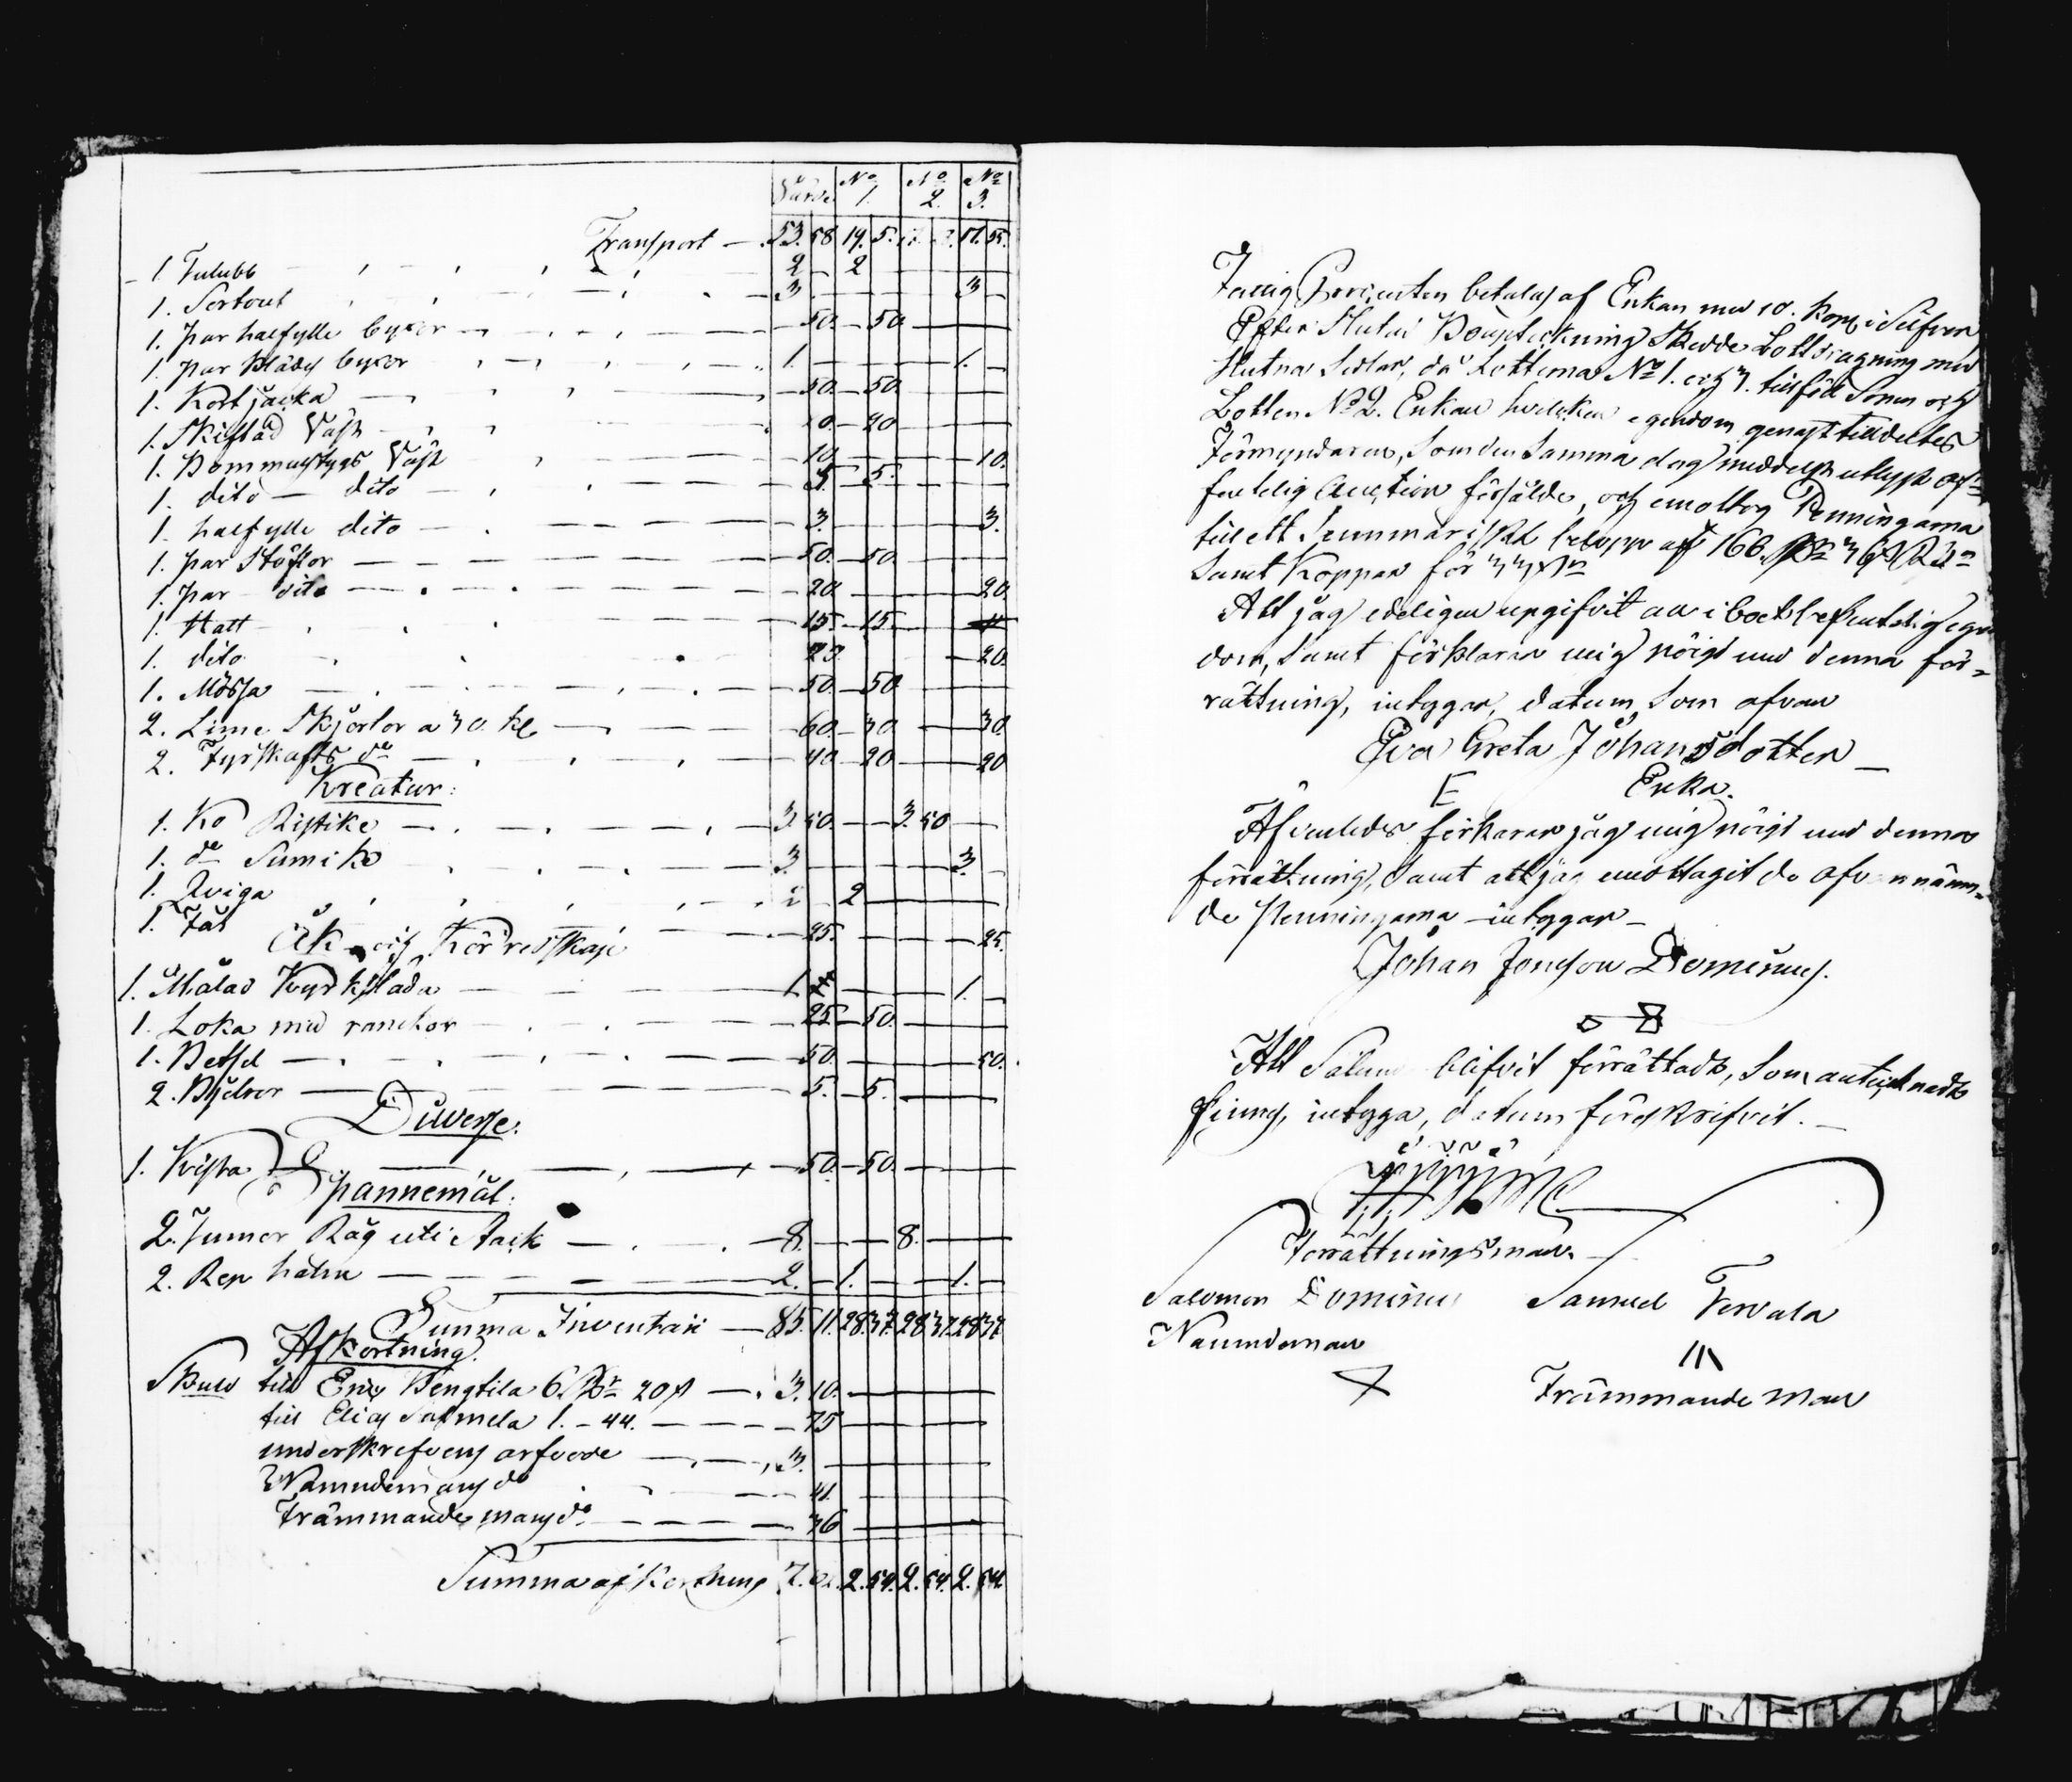 Värde No 1. No 2. No 3.
Transport — 53. 58 19. 5. 17. 55.
1 Tulubb — 2 — 2
1. Sortout — 3 — 3
1. par halfylle byxor — 50. — 50
1. par Klädes byxor — 1. — 1.
1. Kort jacka — 50. — 50.
1. Skiftad Väst — 20
1. Bommulstygs Väst — 10 — 10.
1. dito — dito — 5. — 5.
1. halfylle dito — 3. — 3.
1. par Stöflor — 50. — 50.
1. par dito — 20. — 20.
1. Hatt — 15. — 15.
1. dito — 20. — 20.
1. Mössa — 50. — 50
2. Linne Skjortor a 30. k — 60. — 30. — 30.
2. Fyrskafts do — 40 — 20 — 20
Kreatur:
1. Ko Ristike — 3. 50. — 3. 50
1. do Sumiko — 3. — 3.
1. Qviga — 2 — 2
1. Får — 25. — 25.
Åk och Körredskap
1. Målad Kyrkslada — 1. — 1.
1. Loka med rankor — 25. — 50.
1. Betsel — 50. — 50.
2. Bjelror — 5. — 5.
Diverse:
1. Kista — 50. — 50.
Spannemål:
2. Tunnor Råg uti Aack — 8. — 8.
2. Rep halm — 2. — 1. — 1.
Summa Inventari — 85. 11. 28. 37. 28 37. 28 37
Afkortning.
Skuld till Eric Bengtila 6. Rbr 20 s — 3. 10.
till Elias Salmela 1. - 44. — 75
underskrefvens arfvode — 3.
Nämndemans do — 41.
Främmande mans do — 36
Summa afkortning 7. 2. 54. 2. 54. 2. 54.
Fattig Procenten betalas af Enkan med 10. kop i Silfver
Efter Slutad Bouptekning Skedde Lottdragning med
Slutna Sedlar, då Lotterna No 1. och 3. tillföll Sonen och
Lotten No 2. Enkan hvilken egendom genast tilldeltes
Förmyndaren, Som den Samma dag medelst utlyst of=
fentelig Auction försålde, och emottog Penningarna
till ett Summariskt belopp af 166.
Samt Koppar för
Att jag edeligen upgifvit all i boet befintelig egen
dom, Samt förklarar mig nöigd med denna för=
rättning, intygar, datum Som ofvan
Eva Greta Johansdotter
E Enka.
Äfvenledes förkarar jag mig nöigd med denna
förrättning, Samt att jag emottagit de ofvannämn=
de Penningarna intygar
Johan Jonsson Dominus.
Att Sålunda blifvit förrättadt, Som antecknadt
finnes, intyga, datum förskrifvit.
Förrättningsman.
Salomon Dominus Samuel Tervala
Nämndeman
Främmande man